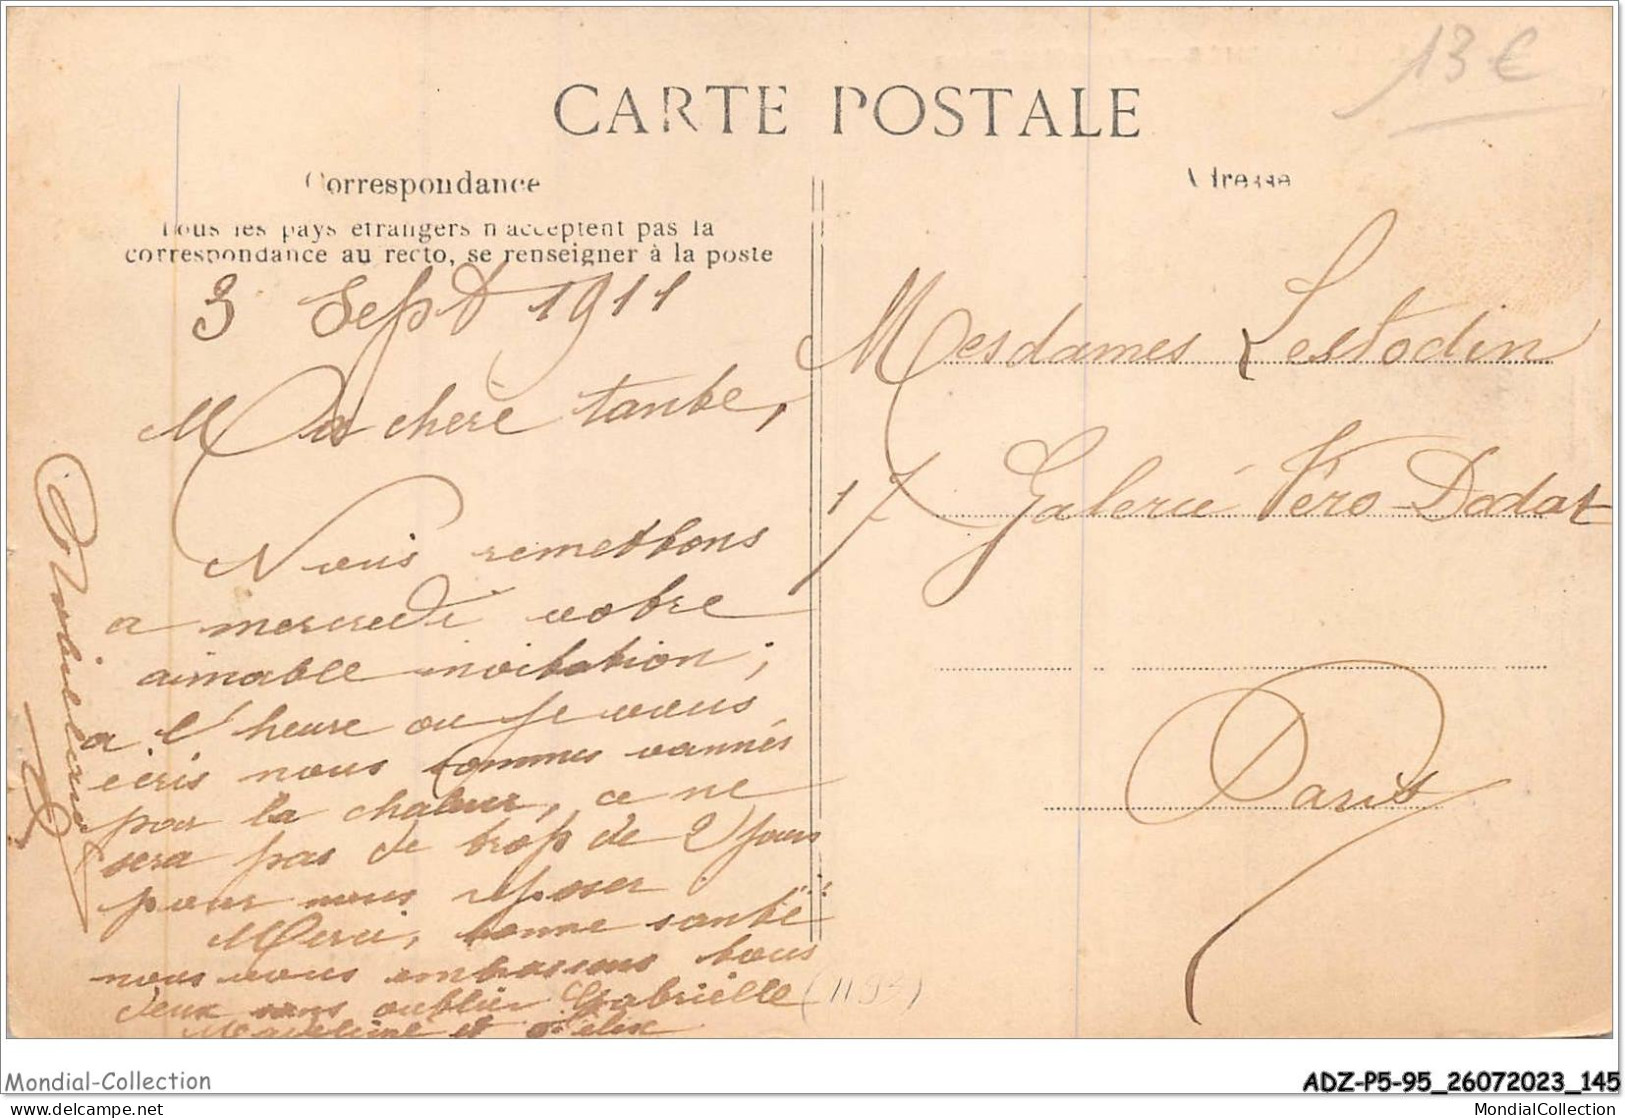 13 €
CARTE POSTALE
Correspondance
Adresse
Tous les pays étrangers n'acceptent pas la
correspondance au recto, se renseigner à la poste
3 Sept 1911
Ma chère tante,
Nous remettons
a mercredi votre
aimable invitation ;
a l'heure ou je vous
écris nous sommes vannés
par la chaleur, ce ne
sera pas de trop de 2 jours
pour nous reposer.
Merci, bonne santé
nous vous embrassons tous
deux sans oublier Gabrielle
Madeleine et Felix
Mesdames Lestodin
17 Galerie Vero-Dodat
Paris
(1193)
Mondial-Collection
ADZ-P5-95_26072023_145
delcampe.net
MondialCollection.COM